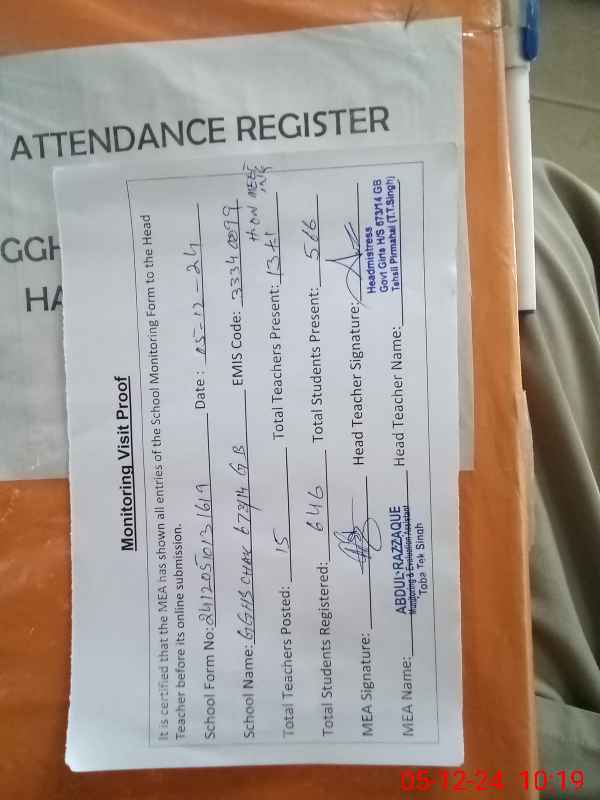 ATTENDANCE REGISTER
GGH
HA
Monitoring Visit Proof
It is certified that the MEA has shown all entries of the School Monitoring Form to the Head
Teacher before its online submission.
School Form No: 24120510131619 Date : 05-12-24
School Name: GGHS CHAK 673/14 GB EMIS Code: 33340099
Total Teachers Posted: 15 Total Teachers Present: 13+1
Total Students Registered: 646 Total Students Present: 566
MEA Signature: Head Teacher Signature:
ABDUL RAZZAQUE
Monitoring & Evaluation Assistant
Toba Tek Singh
Headmistress
Govt Girls H/S 673/14 GB
Tehsil Pirmahal (T.T.Singh)
MEA Name: Head Teacher Name:
05-12-24 10:19